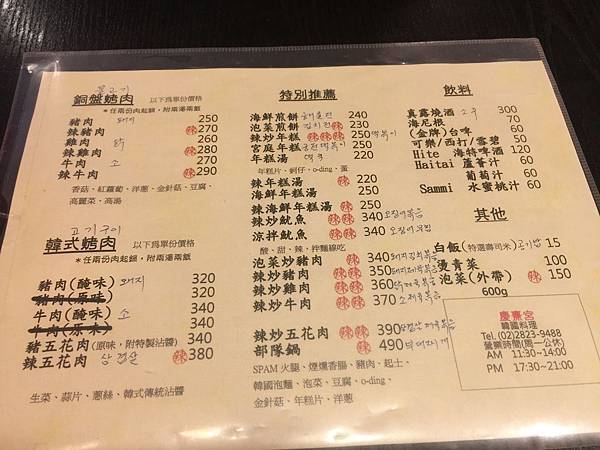 불고기
銅盤烤肉 以下為單份價格
*任兩份肉起鍋,附兩湯兩飯
豬肉 돼지 250
辣豬肉 辣 270
雞肉 닭 260
辣雞肉 辣 280
牛肉 소 270
辣牛肉 辣 290
香菇、紅蘿蔔、洋蔥、金針菇、豆腐、
高麗菜、高湯
고기구이
韓式烤肉 以下為單份價格
*任兩份肉起鍋,附兩湯兩飯
豬肉(醃味) 돼지 320
豬肉(原味) 320
牛肉(醃味) 소 340
牛肉(原味) 340
豬五花肉(原味,附特製沾醬) 340
辣五花肉 삼겹살 辣 380
生菜、蒜片、蔥絲、韓式傳統沾醬
特別推薦
海鮮煎餅 해물전 240
泡菜煎餅 김치전 辣 230
辣炒年糕 辣辣辣 250 떡볶이
宮庭年糕 궁전떡볶이 250
年糕湯 떡국 220
年糕片、蚵仔、o-ding、蛋
辣年糕湯 辣 250
辣海鮮年糕湯 辣 350
辣炒魷魚 辣辣 340 오징어볶음
涼拌魷魚 辣辣 340
酸、甜、辣、拌麵線吃
泡菜炒豬肉 辣 340 돼지김치볶음
辣炒豬肉 辣辣 350 돼지제육볶음
辣炒雞肉 辣辣 360
辣炒牛肉 辣辣 370
辣炒五花肉 辣辣 390
部隊鍋 辣 490 부대찌개
SPAM火腿、煙燻香腸、豬肉、起士、
韓國泡麵、泡菜、豆腐、o-ding、
金針菇、年糕片、洋蔥
飲料
真露燒酒 소주 300
海尼根 70
(金牌)台啤 60
可樂/西打/雪碧 50
Hite 海特啤酒 120
Haitai 蘆薈汁 60
葡萄汁 60
Sammi 水蜜桃汁 60
其他
白飯(特選壽司米) 공기밥 15
燙青菜 100
泡菜(外帶) 辣 150
600g
慶熹宮
韓國料理
Tel. (02)2823-9488
營業時間(周一公休)
AM 11:30~14:00
PM 17:30~21:00